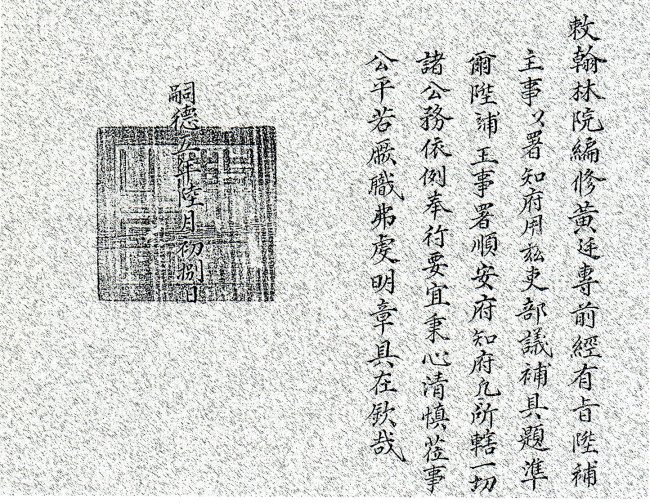 敕翰林院編修黃廷專前經有旨陞補
主事署知府用茲吏部議補具題準
爾陞補主事署順安府知府凡所轄一切
諸公務依例奉行要宜秉心清慎莅事
公平若厥職弗虔明章具在欽哉
嗣德五年陸月初捌日